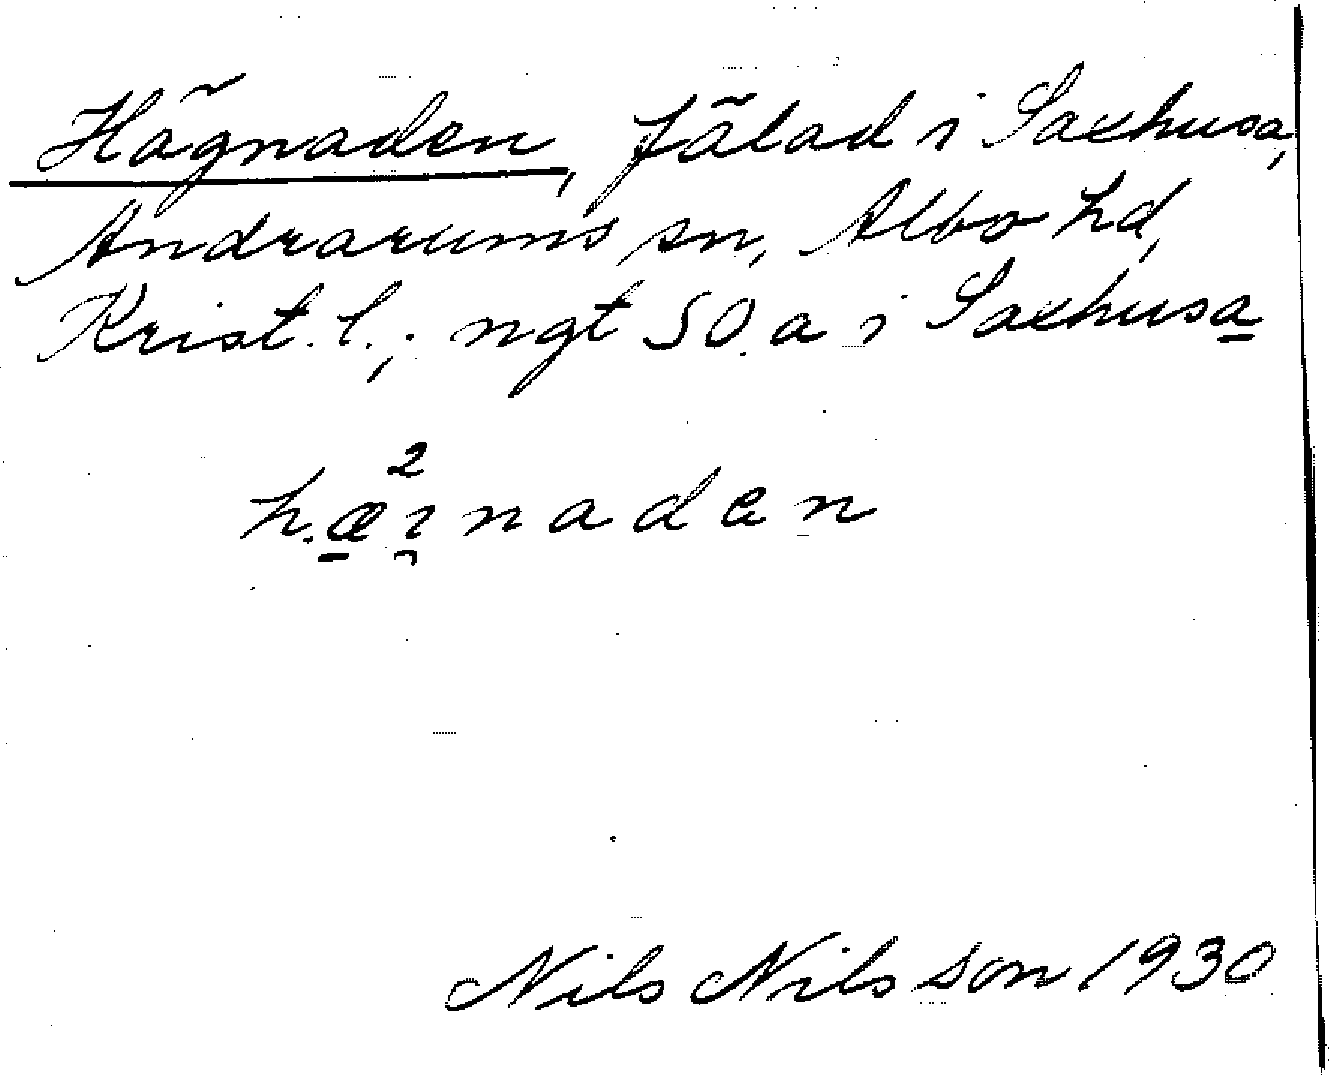 Hägnaden, fälad i Saxhusa,
Andrarums sn, Albo hd,
Krist. l.; ngt SO. a i Saxhusa
hæ²ı̯naden
Nils Nilsson 1930